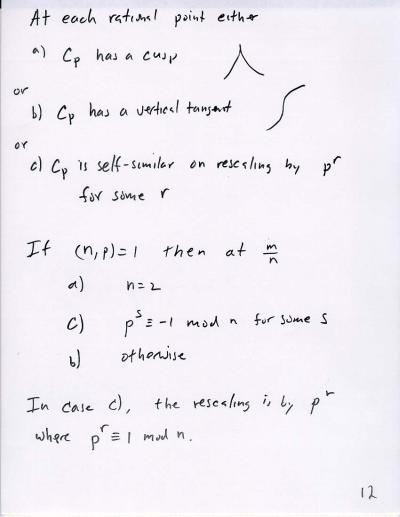 At each rational point either
a) Cp has a cusp
or
b) Cp has a vertical tangent
or
c) Cp is self-similar on rescaling by p^r
for some r
If (n,p)=1 then at m/n
a) n=2
c) p^s ≡ -1 mod n for some s
b) otherwise
In case c), the rescaling is by p^r
where p^r ≡ 1 mod n.
12